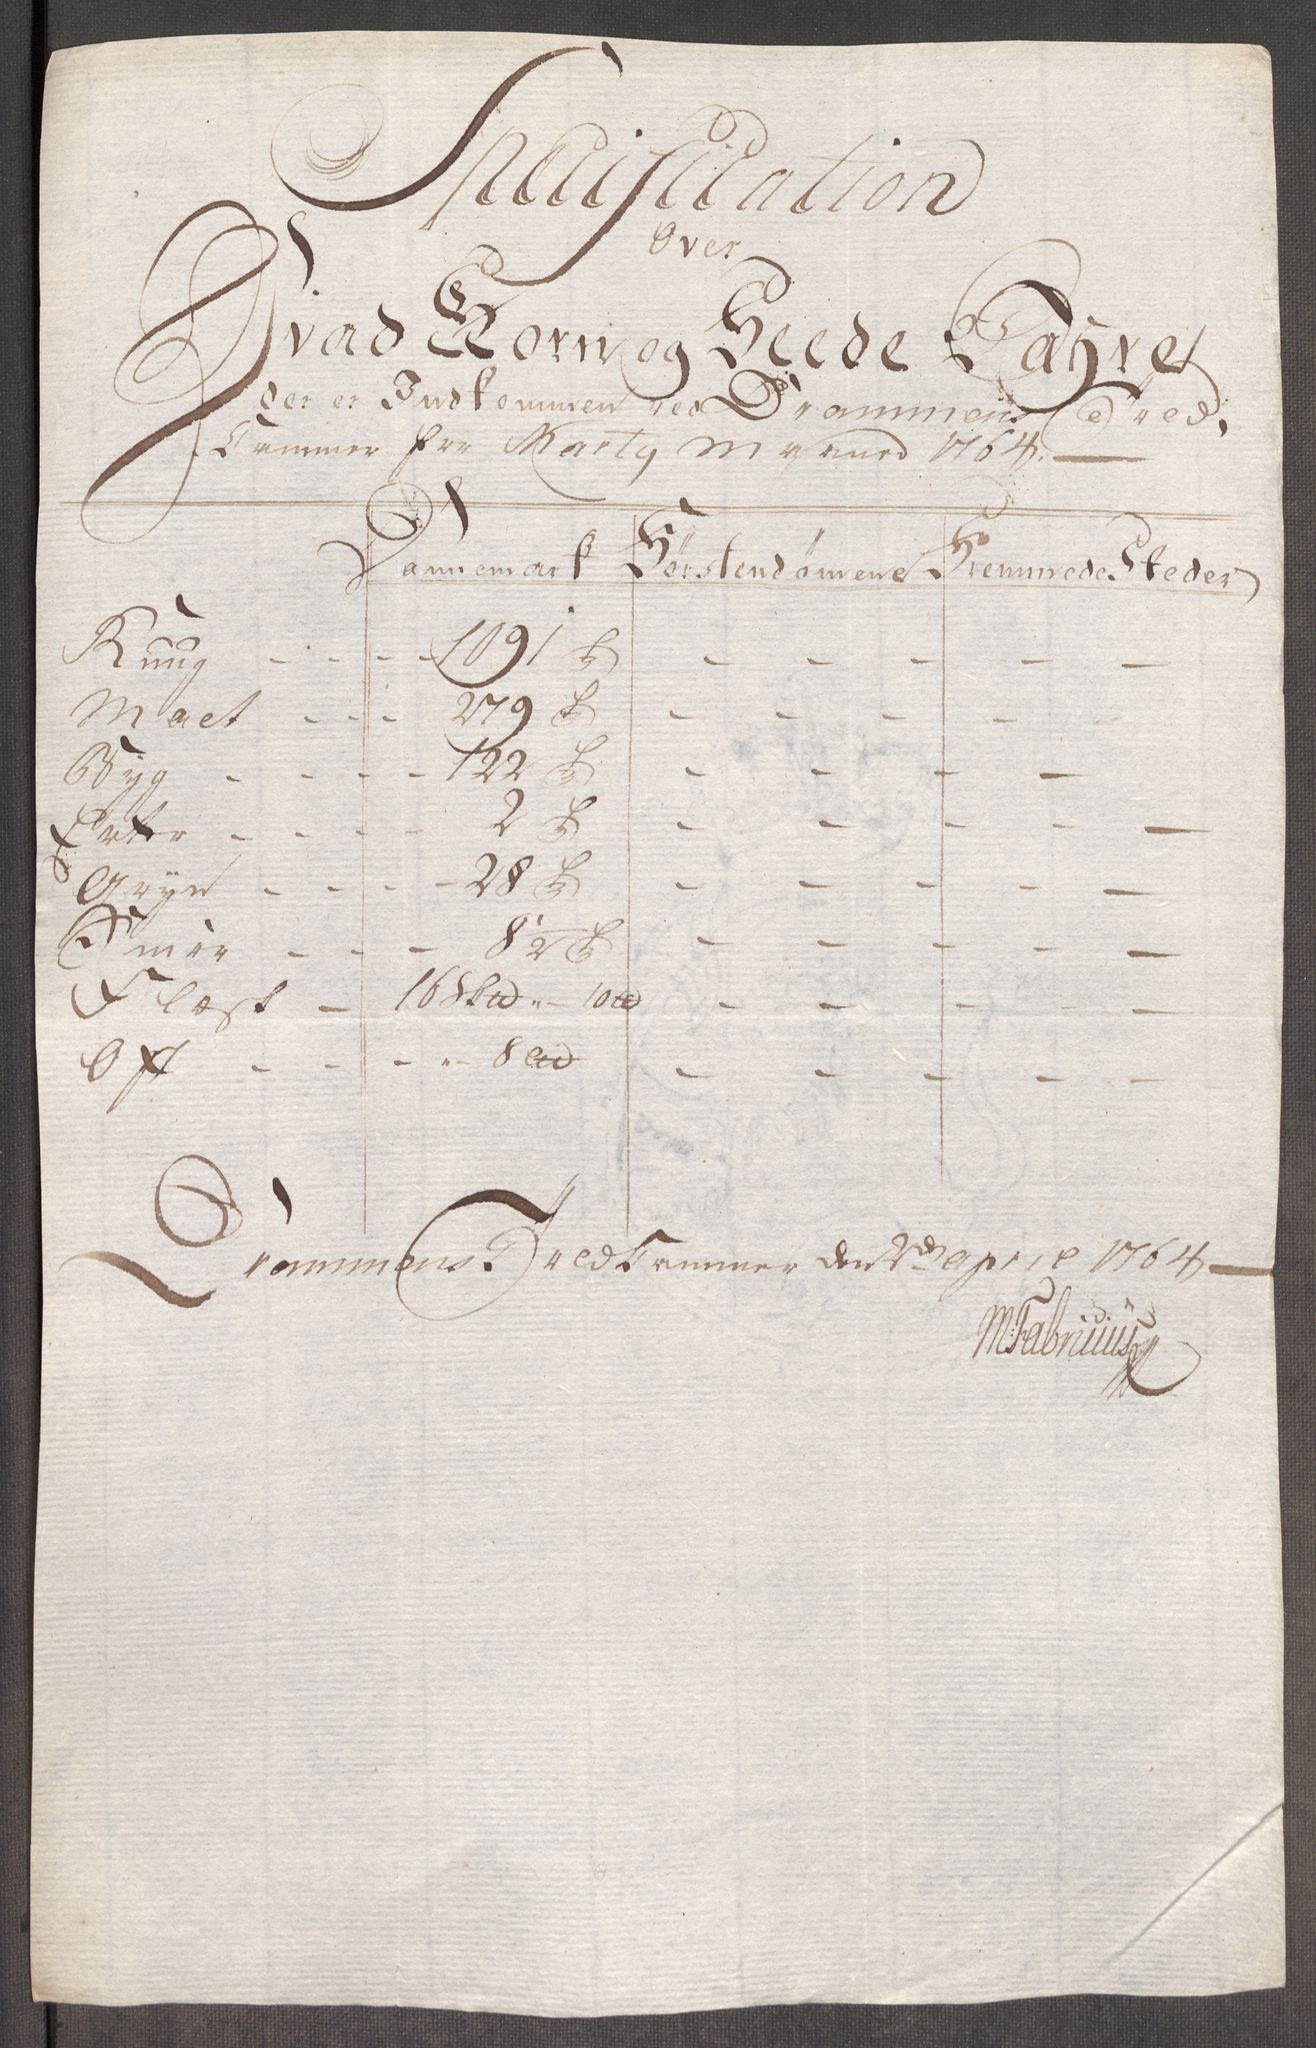 Specification
Over
Hvad Korn og Feede Vahre
der er Indkommen ved Drammens Toed,
Cammer for Marty Maaned 1764.
Dannemark Förstendömene Fremmede Steder
Ruug - - - - 1091 t - - - - -
Malt - - - 279 t - - - - -
Byg - - - - 122 t - - - -
Erter - - - - 2 t - - - - -
Gryn - - - - 28 t - - - - -
Smör - - - 8 1/2 t - - - - -
Flæsk - 16 Sk℔ " 10 ℔ - - - - -
Ost - - - " 8 L℔ - - - - -
Drammens Toed Cammer den 2den April 1764
MFabritius